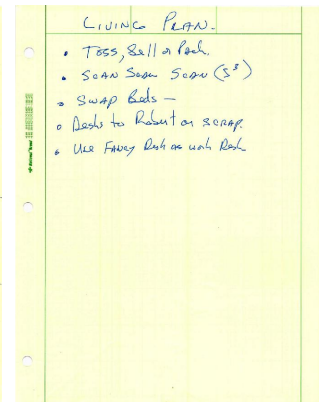 LIVING PLAN.
• TOSS, Sell or Pack.
• SCAN SCAN SCAN (S³)
• SWAP Beds —
• Desks to Robert or SCRAP.
• Use FANCY Desk as work Desk